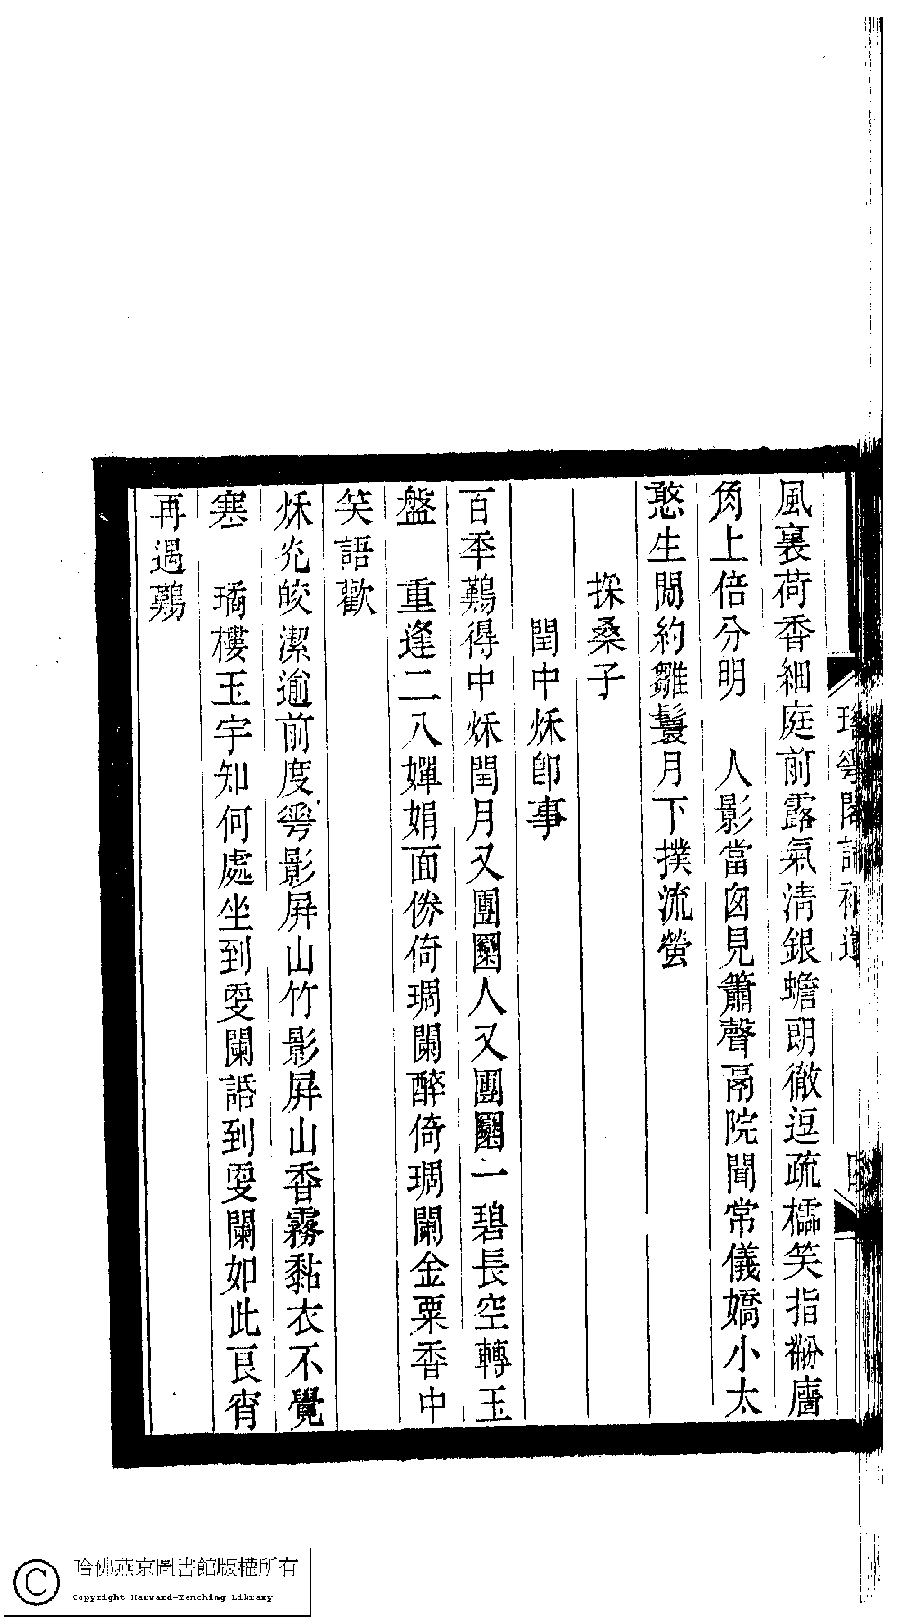 風裏荷香細庭前露氣清銀蟾朗徹逗疏櫺笑指粉廧
角上倍分明　人影當囪見簫聲鬲院聞常儀嬌小太
憨生閒約雛鬟月下撲流螢
採桑子
閏中秌卽事
百秊鷬得中秌閏月又團圞人又團圞一碧長空轉玉
盤　重逢二八嬋娟面㑞倚琱闌醉倚琱闌金粟香中
笑語歡
秌灮皎潔逾前度䔢影屛山竹影屛山香霧黏衣不覺
寒　璚樓玉宇知何處坐到㪅闌話到㪅闌如此良宵
再遇鷬
哈佛燕京圖書館版權所有
Copyright Harvard-Yenching Library